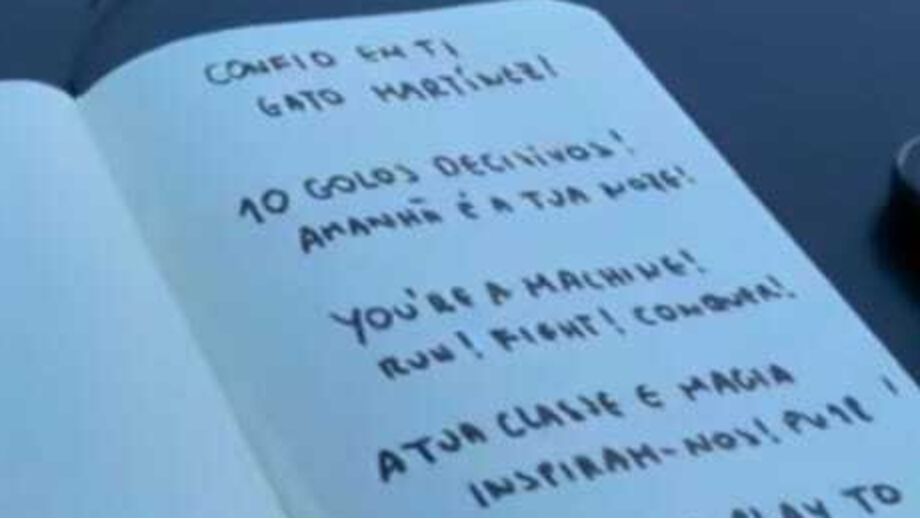 CONFIO EM TI
GATO MARTÍNEZ!
10 GOLOS DECISIVOS!
AMANHÃ É A TUA NOITE!
YOU'RE A MACHINE!
RUN! FIGHT! CONQUER!
A TUA CLASSE E MAGIA
INSPIRAM-NOS!
PLAY TO